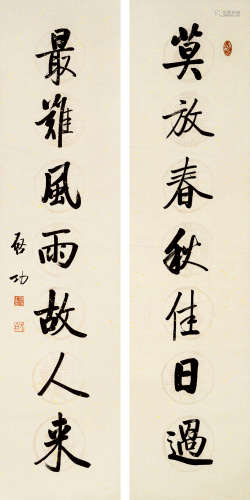 莫放春秋佳日過
最難風雨故人来
啟功